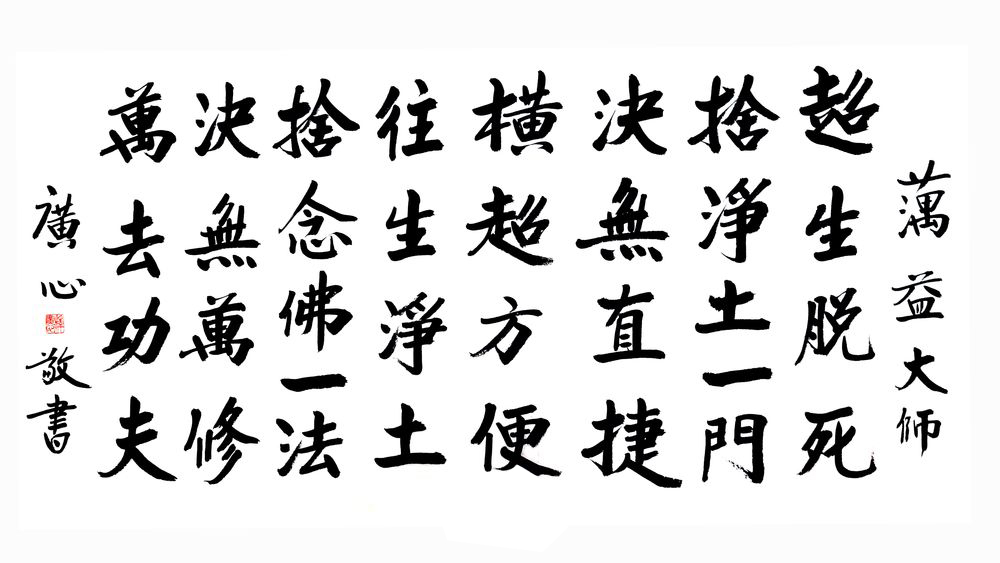 蕅益大师
超生脱死
捨淨土一門
決無直捷
橫超方便
往生淨土
捨念佛一法
決無萬修
萬去功夫
廣心敬書